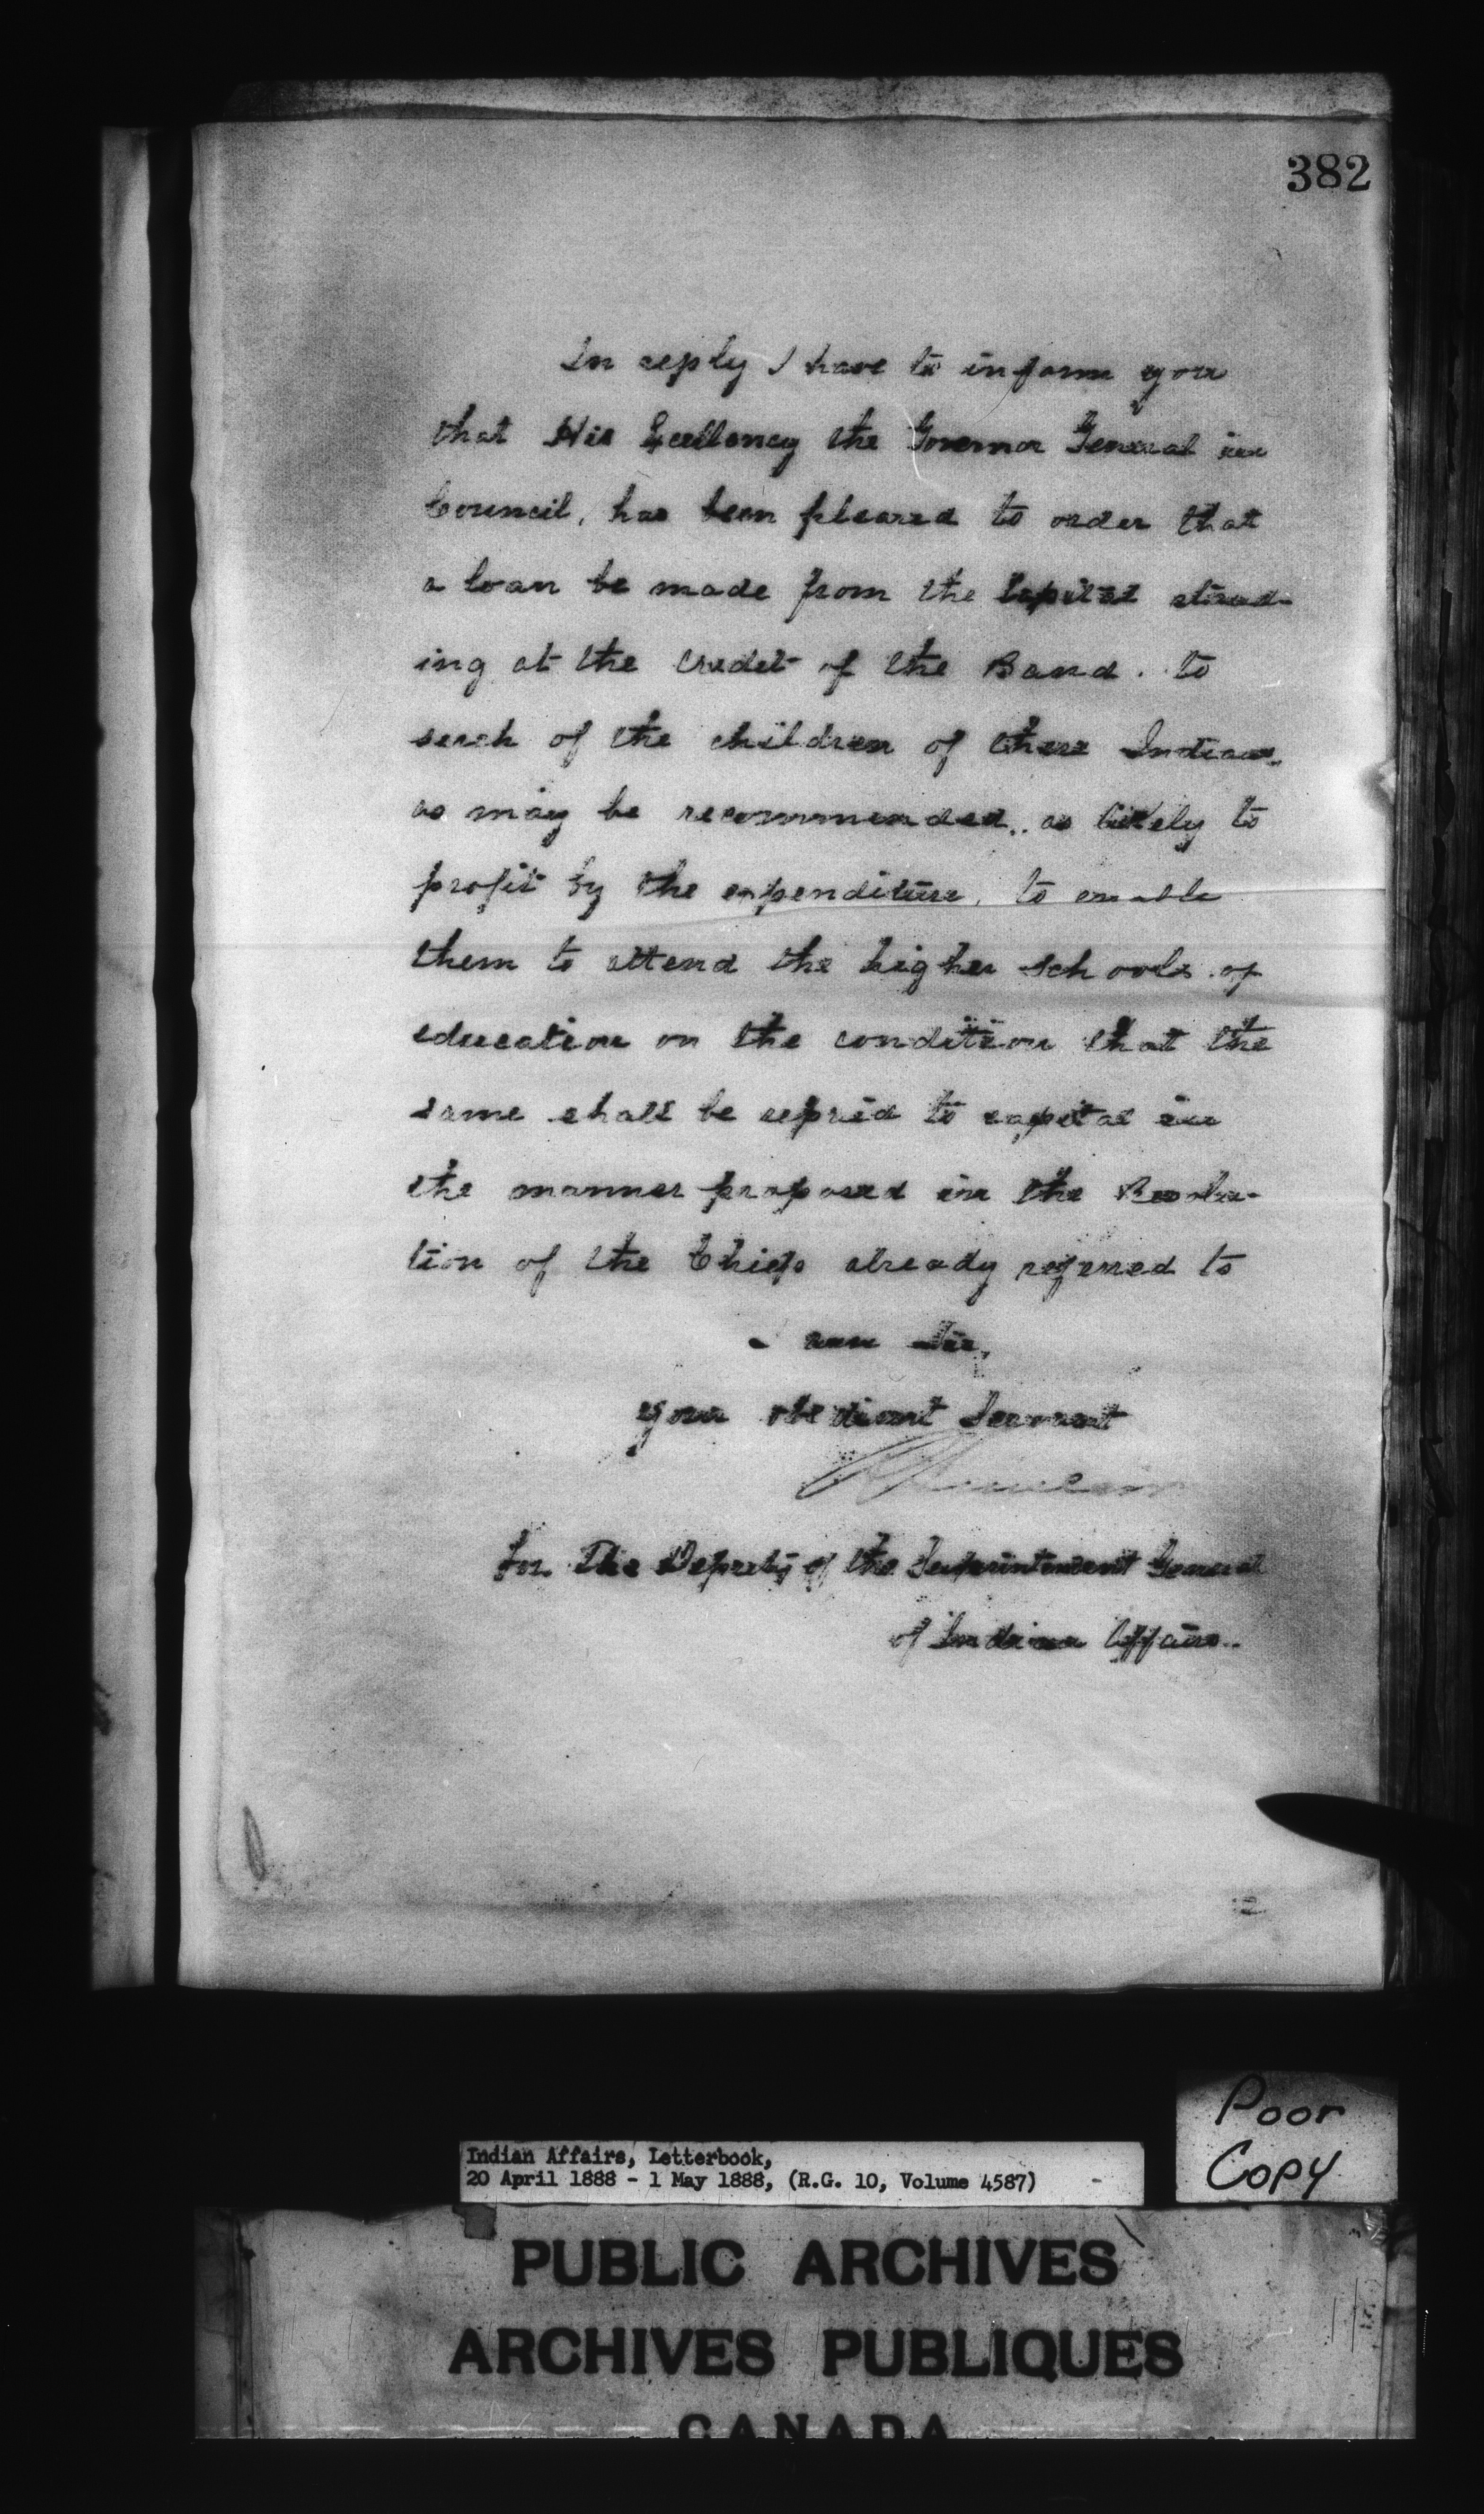 382
In reply I have to inform you
that His Excellency the Governor General in
Council, has been pleased to order that
a loan be made from the Capital stand-
ing at the credit of the Band. to
such of the children of these Indians
as may be recommended, as likely to
profit by the expenditure, to enable
them to attend the higher schools of
education on the condition that the
same shall be repaid to capital in
the manner proposed in the Resolu-
tion of the Chiefs already referred to
I am Sir,
Your obedient Servant
for The Deputy of the Superintendent General
of Indian Affairs.
Poor
Copy
Indian Affairs, Letterbook,
20 April 1888 - 1 May 1888, (R.G. 10, Volume 4587) -
PUBLIC ARCHIVES
ARCHIVES PUBLIQUES
CANADA